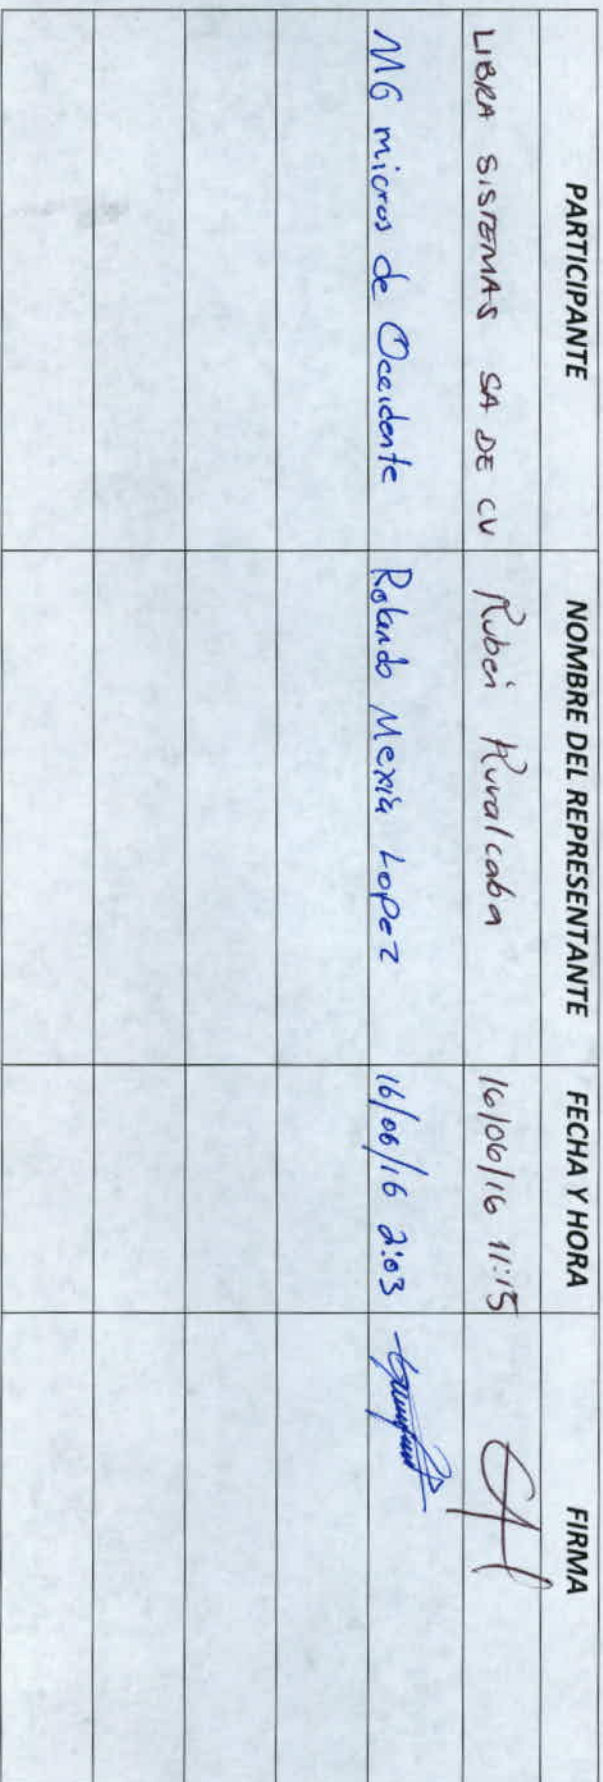 PARTICIPANTE NOMBRE DEL REPRESENTANTE FECHA Y HORA FIRMA
LIBRA SISTEMAS SA DE CV Ruben Ruvalcaba 16/06/16 11:15
MG micros de Occidente Rolando Mexia Lopez 16/06/16 2:03